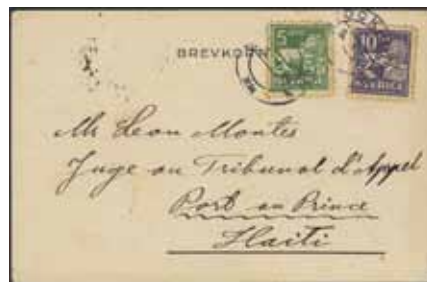 BREVKORT
5
10
SVERIGE
SVERIGE
Mr Leon Montes
Juge au Tribunal d'Appel
Port au Prince
Haiti